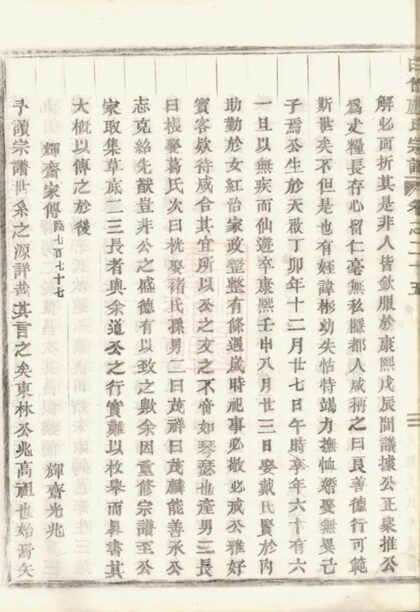 解必面折其是非人皆欽服於康熙戊辰間議據公正眾推公
為丈糧長存心留仁毫無私隱都人咸稱之曰良善德行可範
斯世矣不但是也有姪諱彬幼失怙恃竭力撫恤婚娶無異己
子焉公生於天啟丁卯年十二月廿七日午時享年六十有六
一旦以無疾而仙遊卒康熙壬申八月廿三日娶戴氏賢於內
助勤於女紅治家政整整有條遇歲時祀事必敬必戒公雅好
賓客款待咸合其宜所以公之文之不啻如琴瑟也產男三長
曰棖娶葛氏次曰枕娶褚氏孫男二曰茂祥曰茂麟能善承公
志克紹先猷豈非公之盛德有以致之歟余因重修宗譜至公
家取集草底二三長者與余道公之行實難以枚舉而畧書其
大概以傳之於後
輝齋家傳 臨七百七十七
輝齋光兆
予讀宗譜世系之源詳哉其言之矣東林公兆高祖也始居矣